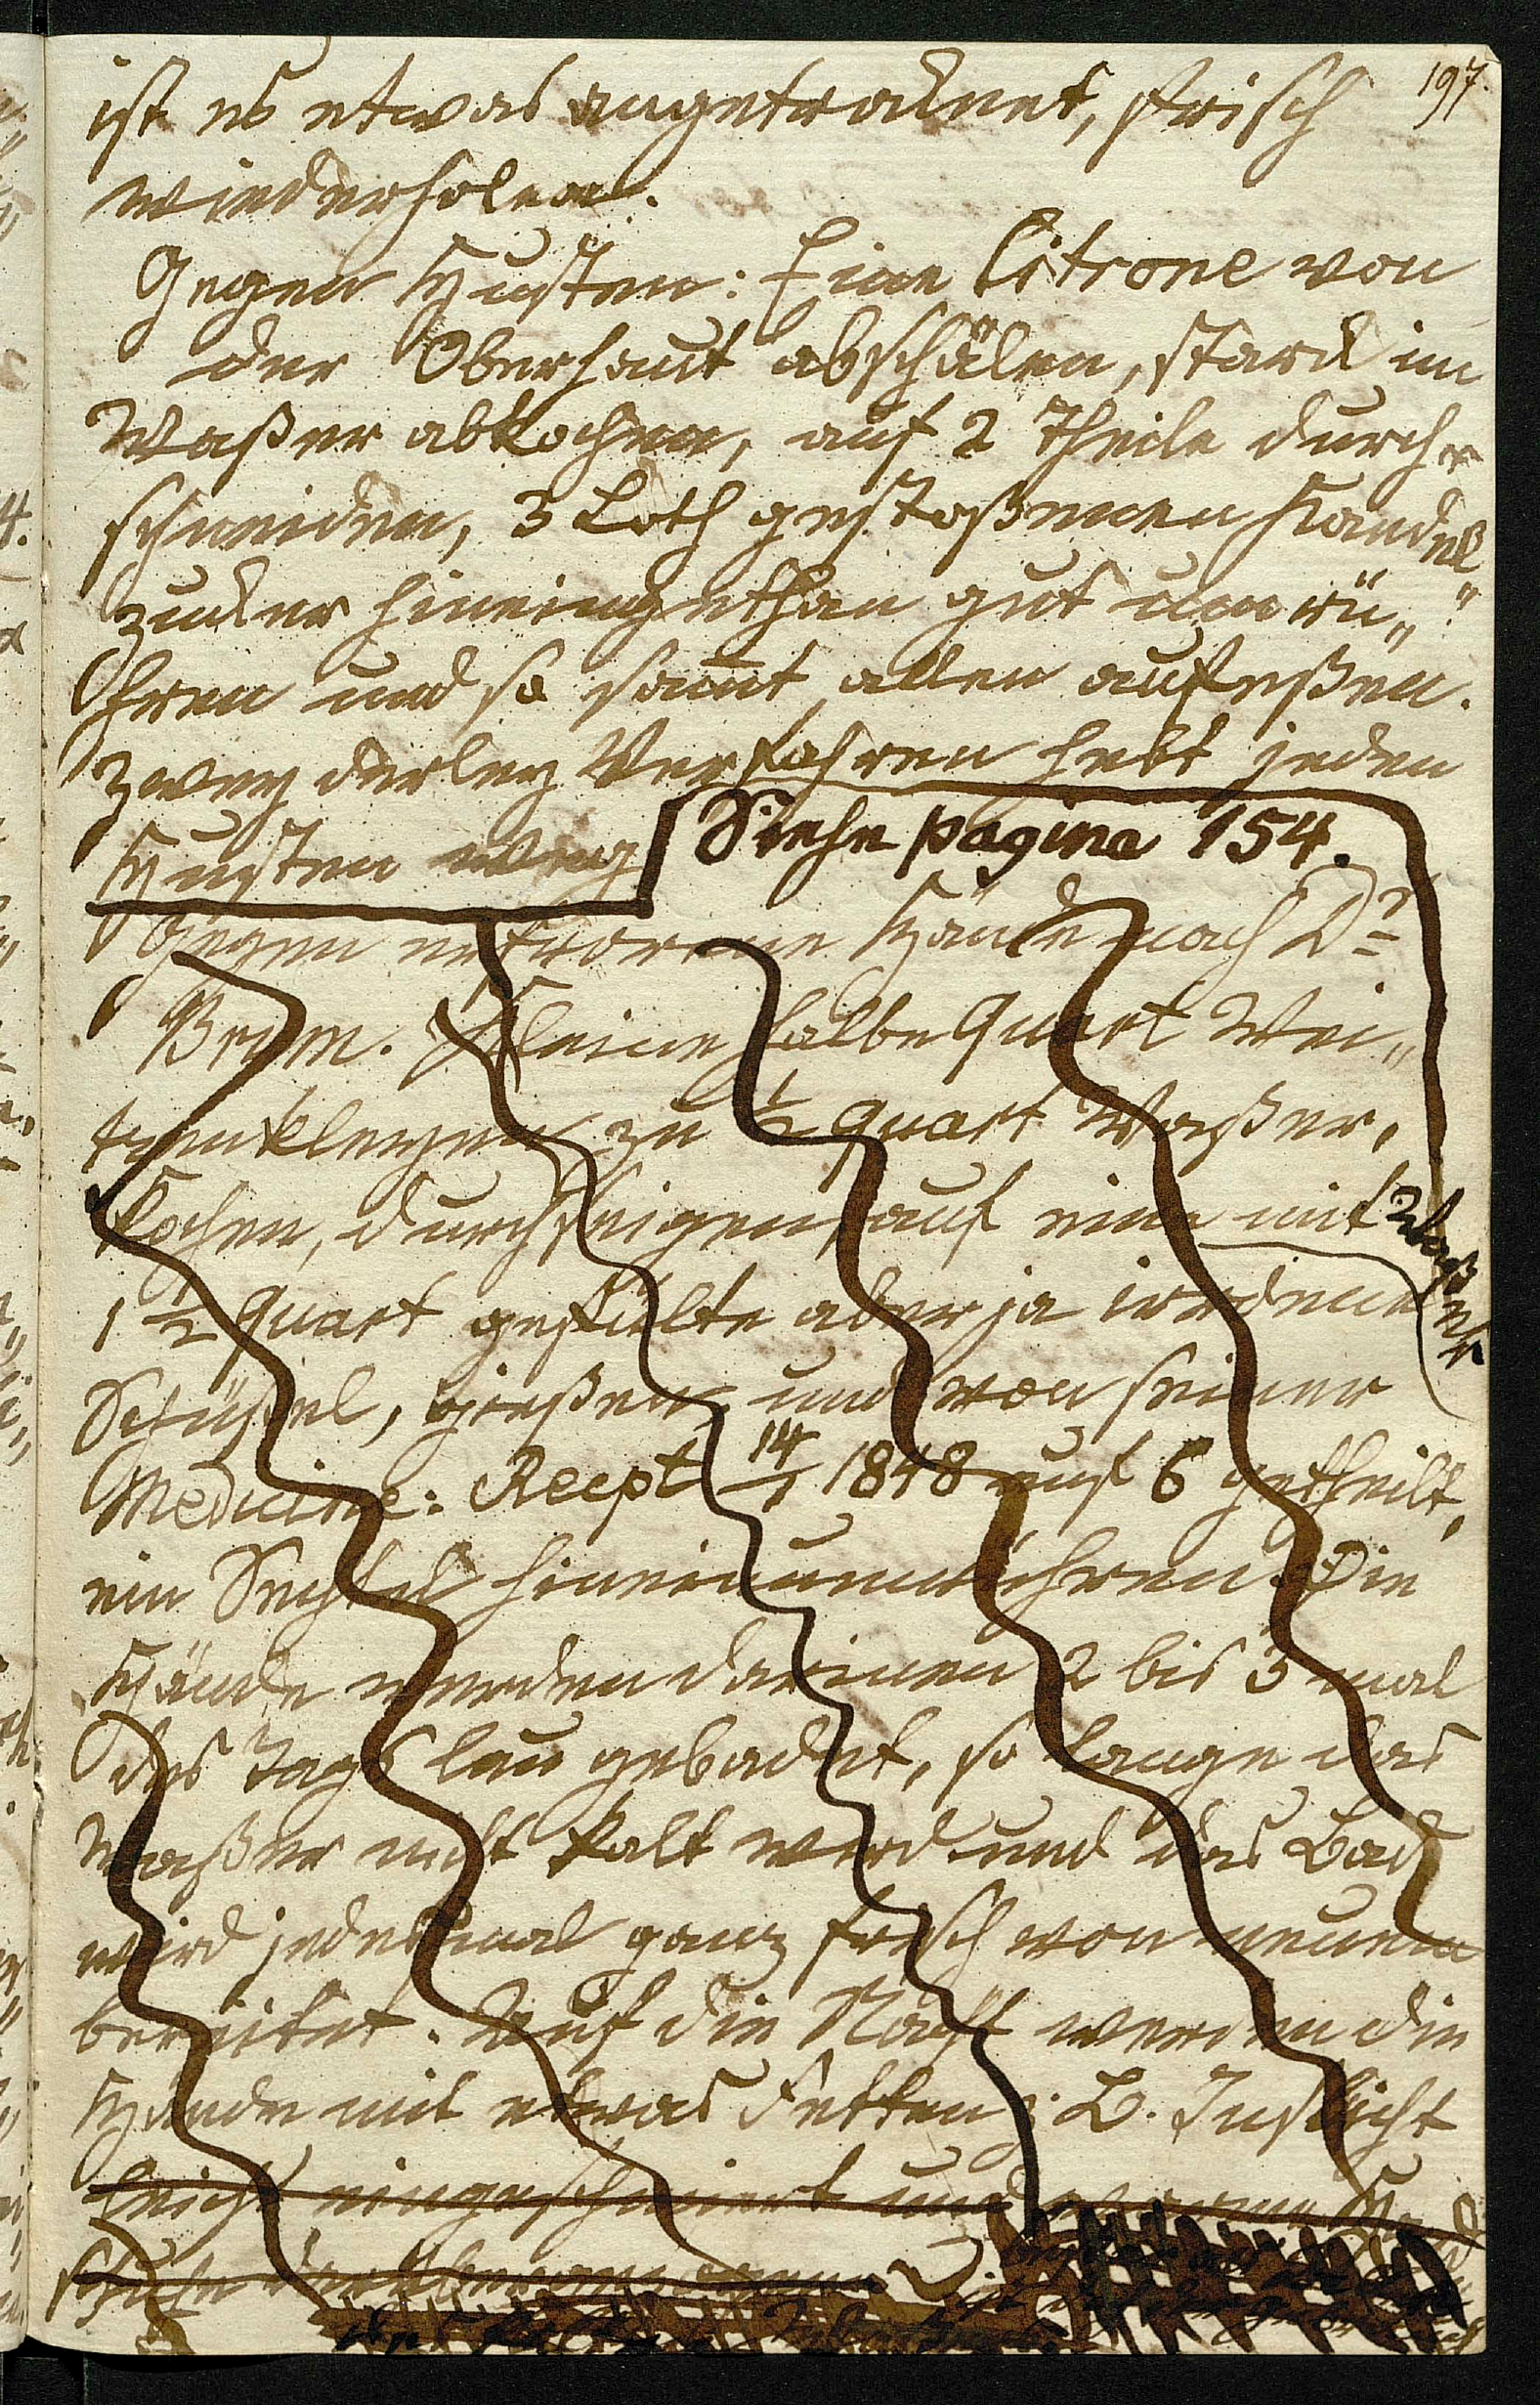 197.
ist es etwas angetrocknet, frisch
wiederholen.
Gegen Husten: Eine Citrone von
der Oberhaut abschälen, starck im
Waßer abkochen, auf 2 Theile durch„
schneiden, 3 Loth gestoßenen Kandel„
zucker hineingethan gut um rü„
hren und so samt allen aufeßen.
Zwey derley Verfahren hebt jeden
Husten weg
Siehe pagina 154.
Gegen erfrorene Hände nach Dr
Kleine halbe Quart Wei„
tzenkleyen zu 1/2 Quart Waßer,
kochen, durchseigen auf eine mit Waßer
1 1/2 Quart gefüllte aber ja irdene
Schüßel, gießen und von seiner
Medicine: Recpt 14/1 1848 auf 6 getheilt,
ein Sechstel hineinumrühren. Die
Hände werden darinen 2 bis 3 mal
des Tags lau gebadet, so lange das
Waßer nicht kalt wird und das Bad
wird jedesmal ganz frisch von neuem
bereitet. Auf die Nacht werden die
Hände mit etwas Fetten z. B. Inslicht
leicht eingeschmiert und